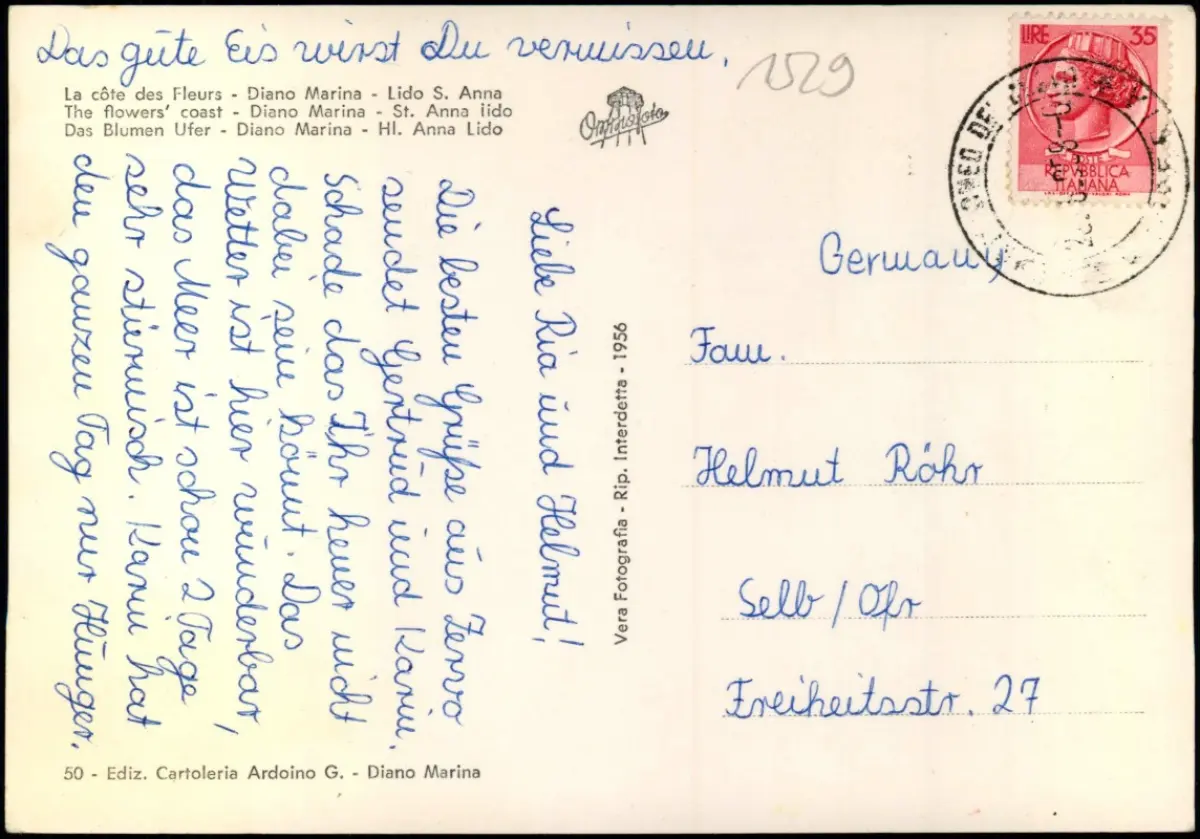 Das gute Eis wirst Du vermissen.
1529
La côte des Fleurs - Diano Marina - Lido S. Anna
The flowers' coast - Diano Marina - St. Anna lido
Das Blumen Ufer - Diano Marina - Hl. Anna Lido
Liebe Ria und Helmut!
Die besten Grüße aus Zervo
sendet Gertrud und Karin.
Schade das Ihr heuer nicht
dabei sein könnt. Das
Wetter ist hier wunderbar,
das Meer ist schon 2 Tage
sehr stürmisch. Karin hat
den ganzen Tag nur Hunger.
50 - Ediz. Cartoleria Ardoino G. - Diano Marina
Vera Fotografia - Rip. Interdetta - 1956
LIRE 35
POSTE
REPVBBLICA
ITALIANA
Germany
Fam.
Helmut Röhr
Selb / Ofr
Freiheitsstr. 27